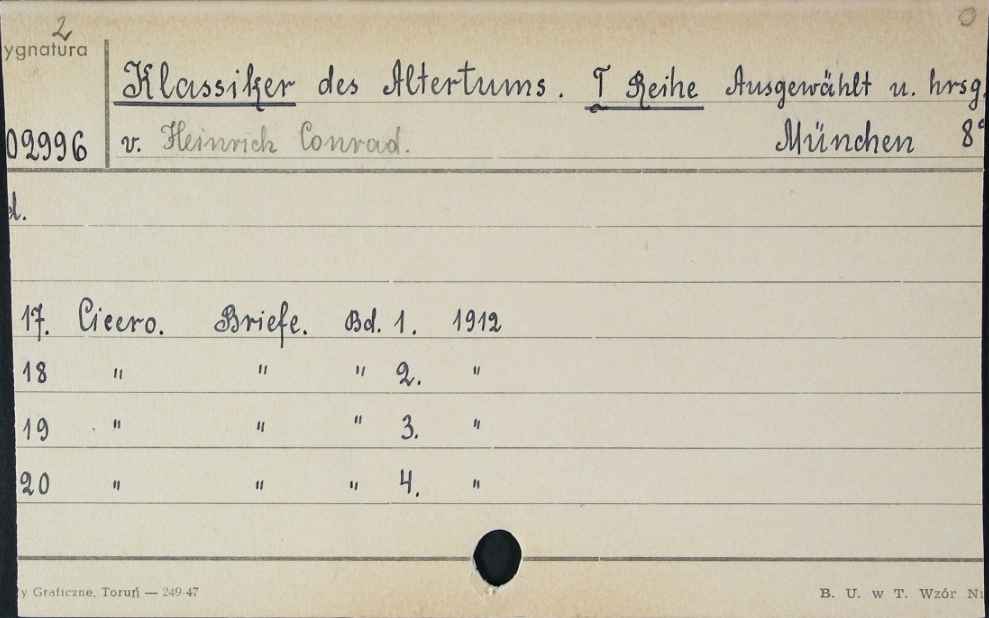 2
ygnatura
Klassiker des Altertums. I Reihe Ausgewählt u. hrsg.
02996 v. Heinrich Conrad. München 8°
d.
17. Cicero. Briefe. Bd. 1. 1912
18 " " " 2. "
19 " " " 3. "
20 " " " 4. "
y Graficzne, Toruń — 249-47 B. U. w T. Wzór Nr